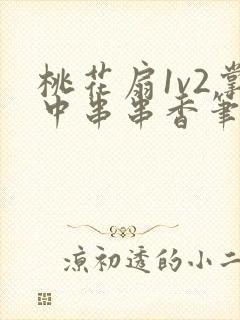 桃花扇1v2掌
中串串香笔
凉初透的小二